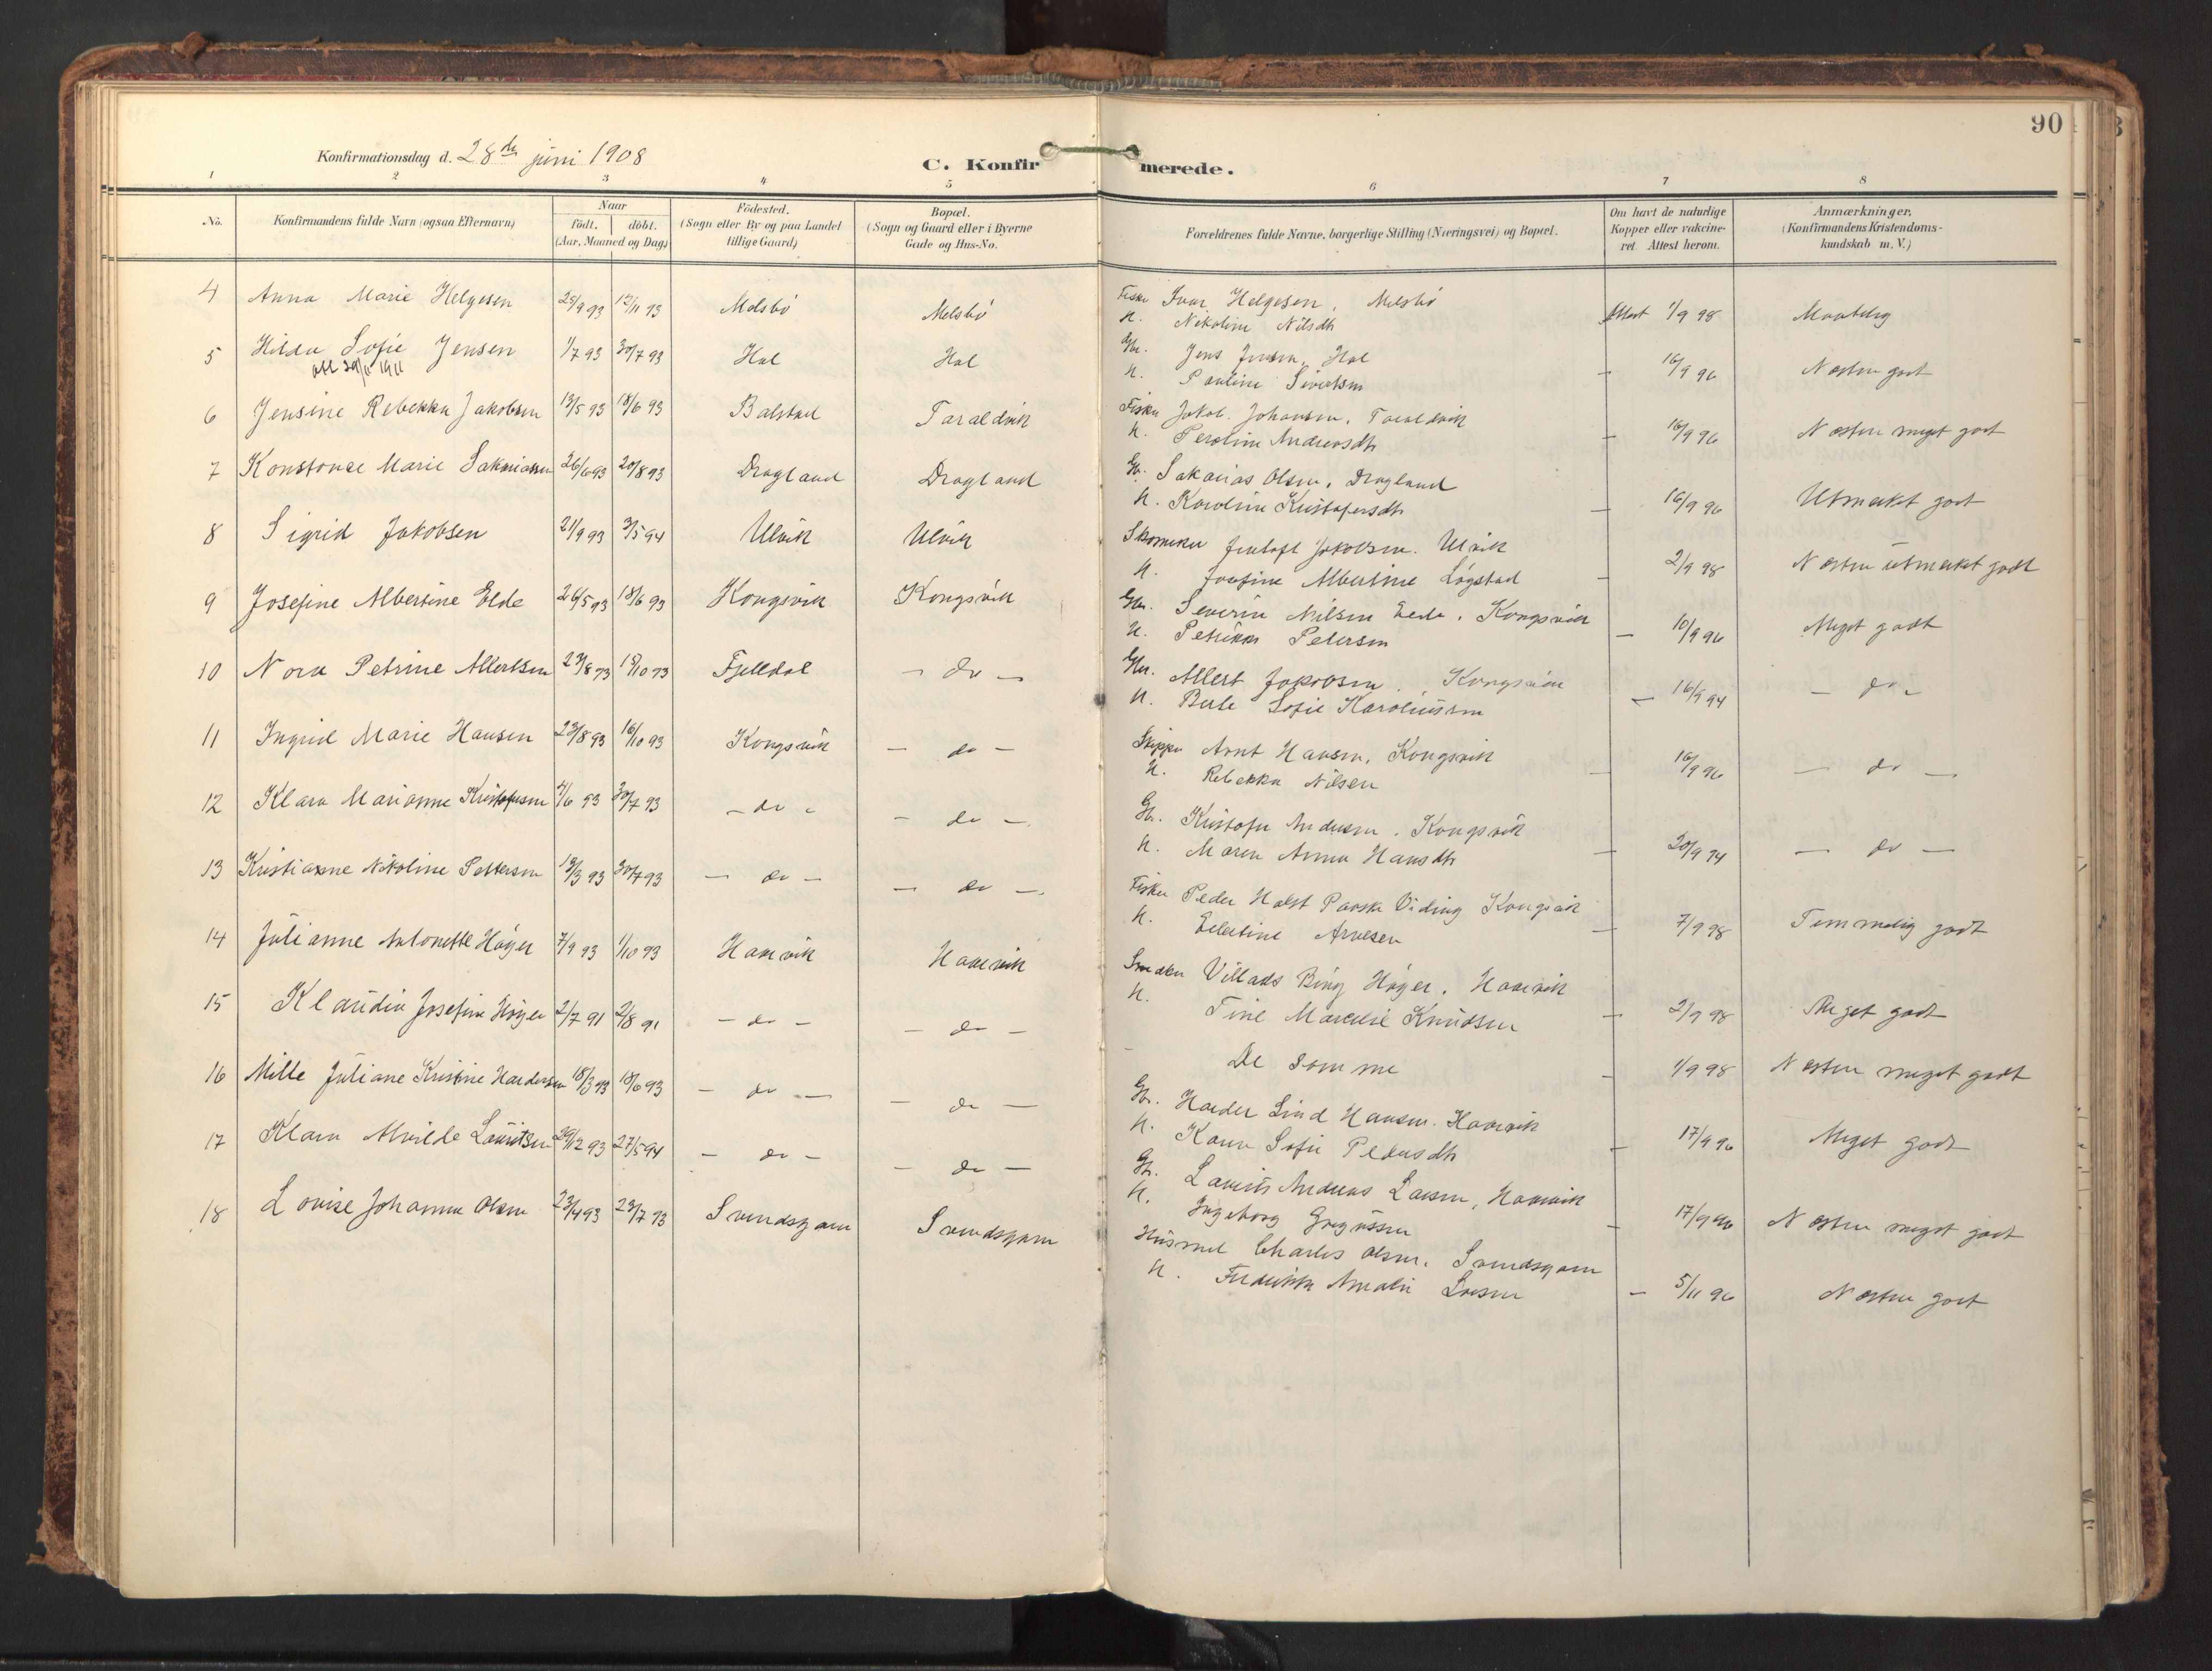 90
Konfirmationsdag d. 28de juni 1908
C. Konfirmerede.
1 2 3 4 5 6 7 8
No. Konfirmandens fulde Navn (ogsaa Efternavn) Naar födt. döbt. (Aar, Maaned og Dag) Födested. (Sogn eller By og paa Landet tillige Gaard) Bopæl. (Sogn og Gaard eller i Byerne Gade og Hus-No. Forældrenes fulde Navne, borgerlige Stilling (Næringsvei) og Bopæl. Om havt de naturlige Kopper eller vakcineret. Attest herom. Anmærkninger. (Konfirmandens Kristendomskundskab m. V.)
4 Anna Marie Helgesen 25/9 93 12/11 93 Melsbö Melsbö Fisker Ivar Helgesen, Melsbö
H. Nikoline Nilsdtr Attest 1/9 98 Maadelig
5 Hilda Sofie Jensen 1/7 93 30/7 93 Hol Hol Gbr. Jens Jensen, Hol
att 29/11 1911
H. Pauline Sivertsen – 16/9 96 Næsten godt
6 Jensine Rebekka Jakobsen 13/5 93 18/6 93 Balstad Taraldvik Fisker Jakob Johansen, Taraldvik
H. Peroline Andreasdtr – 16/9 96 Næsten meget godt
7 Konstanse Marie Sakariassen 26/6 93 20/8 93 Dragland Dragland Gbr. Sakarias Olsen, Dragland
H. Karoline Kristofersdtr – 16/9 96 Utmerket godt
8 Sigrid Jakobsen 21/9 93 3/5 94 Ulvik Ulvik Skomaker Jentoft Jakobsen. Ulvik
H. Josefine Albertine Løgstad – 2/9 98 Næsten utmerket godt
9 Josefine Albertine Elde 26/5 93 18/6 93 Kongsvik Kongsvik Gbr. Severin Nilsen Elde, Kongsvik
H. Petrikke Petersen – 10/9 96 Meget godt
10 Nora Petrine Albertsen 27/8 93 15/10 93 Fjelldal – do – Gbr. Albert Jakobsen, Kongsvik
H. Berte Sofie Karoliussen – 16/9 94 – do –
11 Ingrid Marie Hansen 23/8 93 16/10 93 Kongsvik – do – Skipper Arnt Hansen, Kongsvik
H. Rebekka Nilsen – 16/9 96 – do –
12 Klara Marianne Kristofersen 4/6 93 30/7 93 – do – – do – Gbr. Kristofer Andersen. Kongsvik
H. Maren Anna Hansdtr – 20/9 94 – do –
13 Kristianne Nikoline Pettersen 13/3 93 30/7 93 – do – – do – Fisker Peder Holst Kongsvik
H. Arnesen – 7/9 98 Temmelig godt
14 Julianne Antonette Höyer 7/9 93 1/10 93 Haarvik Haarvik Smeden Villads Bing Höyer, Haarvik
H. Tine Marselie Knudsen – 2/9 98 Meget godt
15 Klaudia Josefine Höyer 2/7 91 2/8 91 – do – – do –
De samme – 1/9 98 Næsten meget godt
16 Mille Juliane Kristine Hardersen 18/3 93 18/6 93 – do – – do – Gbr. Harder Lind Hansen. Haarvik
H. Karen Sofie Pedersdtr – 17/9 96 Meget godt
17 Klara Alvilde Lauritsen 29/12 93 27/5 94 – do – – do – Gbr. Laurits Andreas Larsen, Haarvik
H. Ingeborg Gregussen – 17/9 96 Næsten meget godt
18 Lovise Johanna Olsen 23/4 93 23/7 93 Svendsgam Svendsgam Husmd Charles Olsen, Svendsgam
H. Fredrikke Amalie Larsen – 5/11 96 Næsten godt